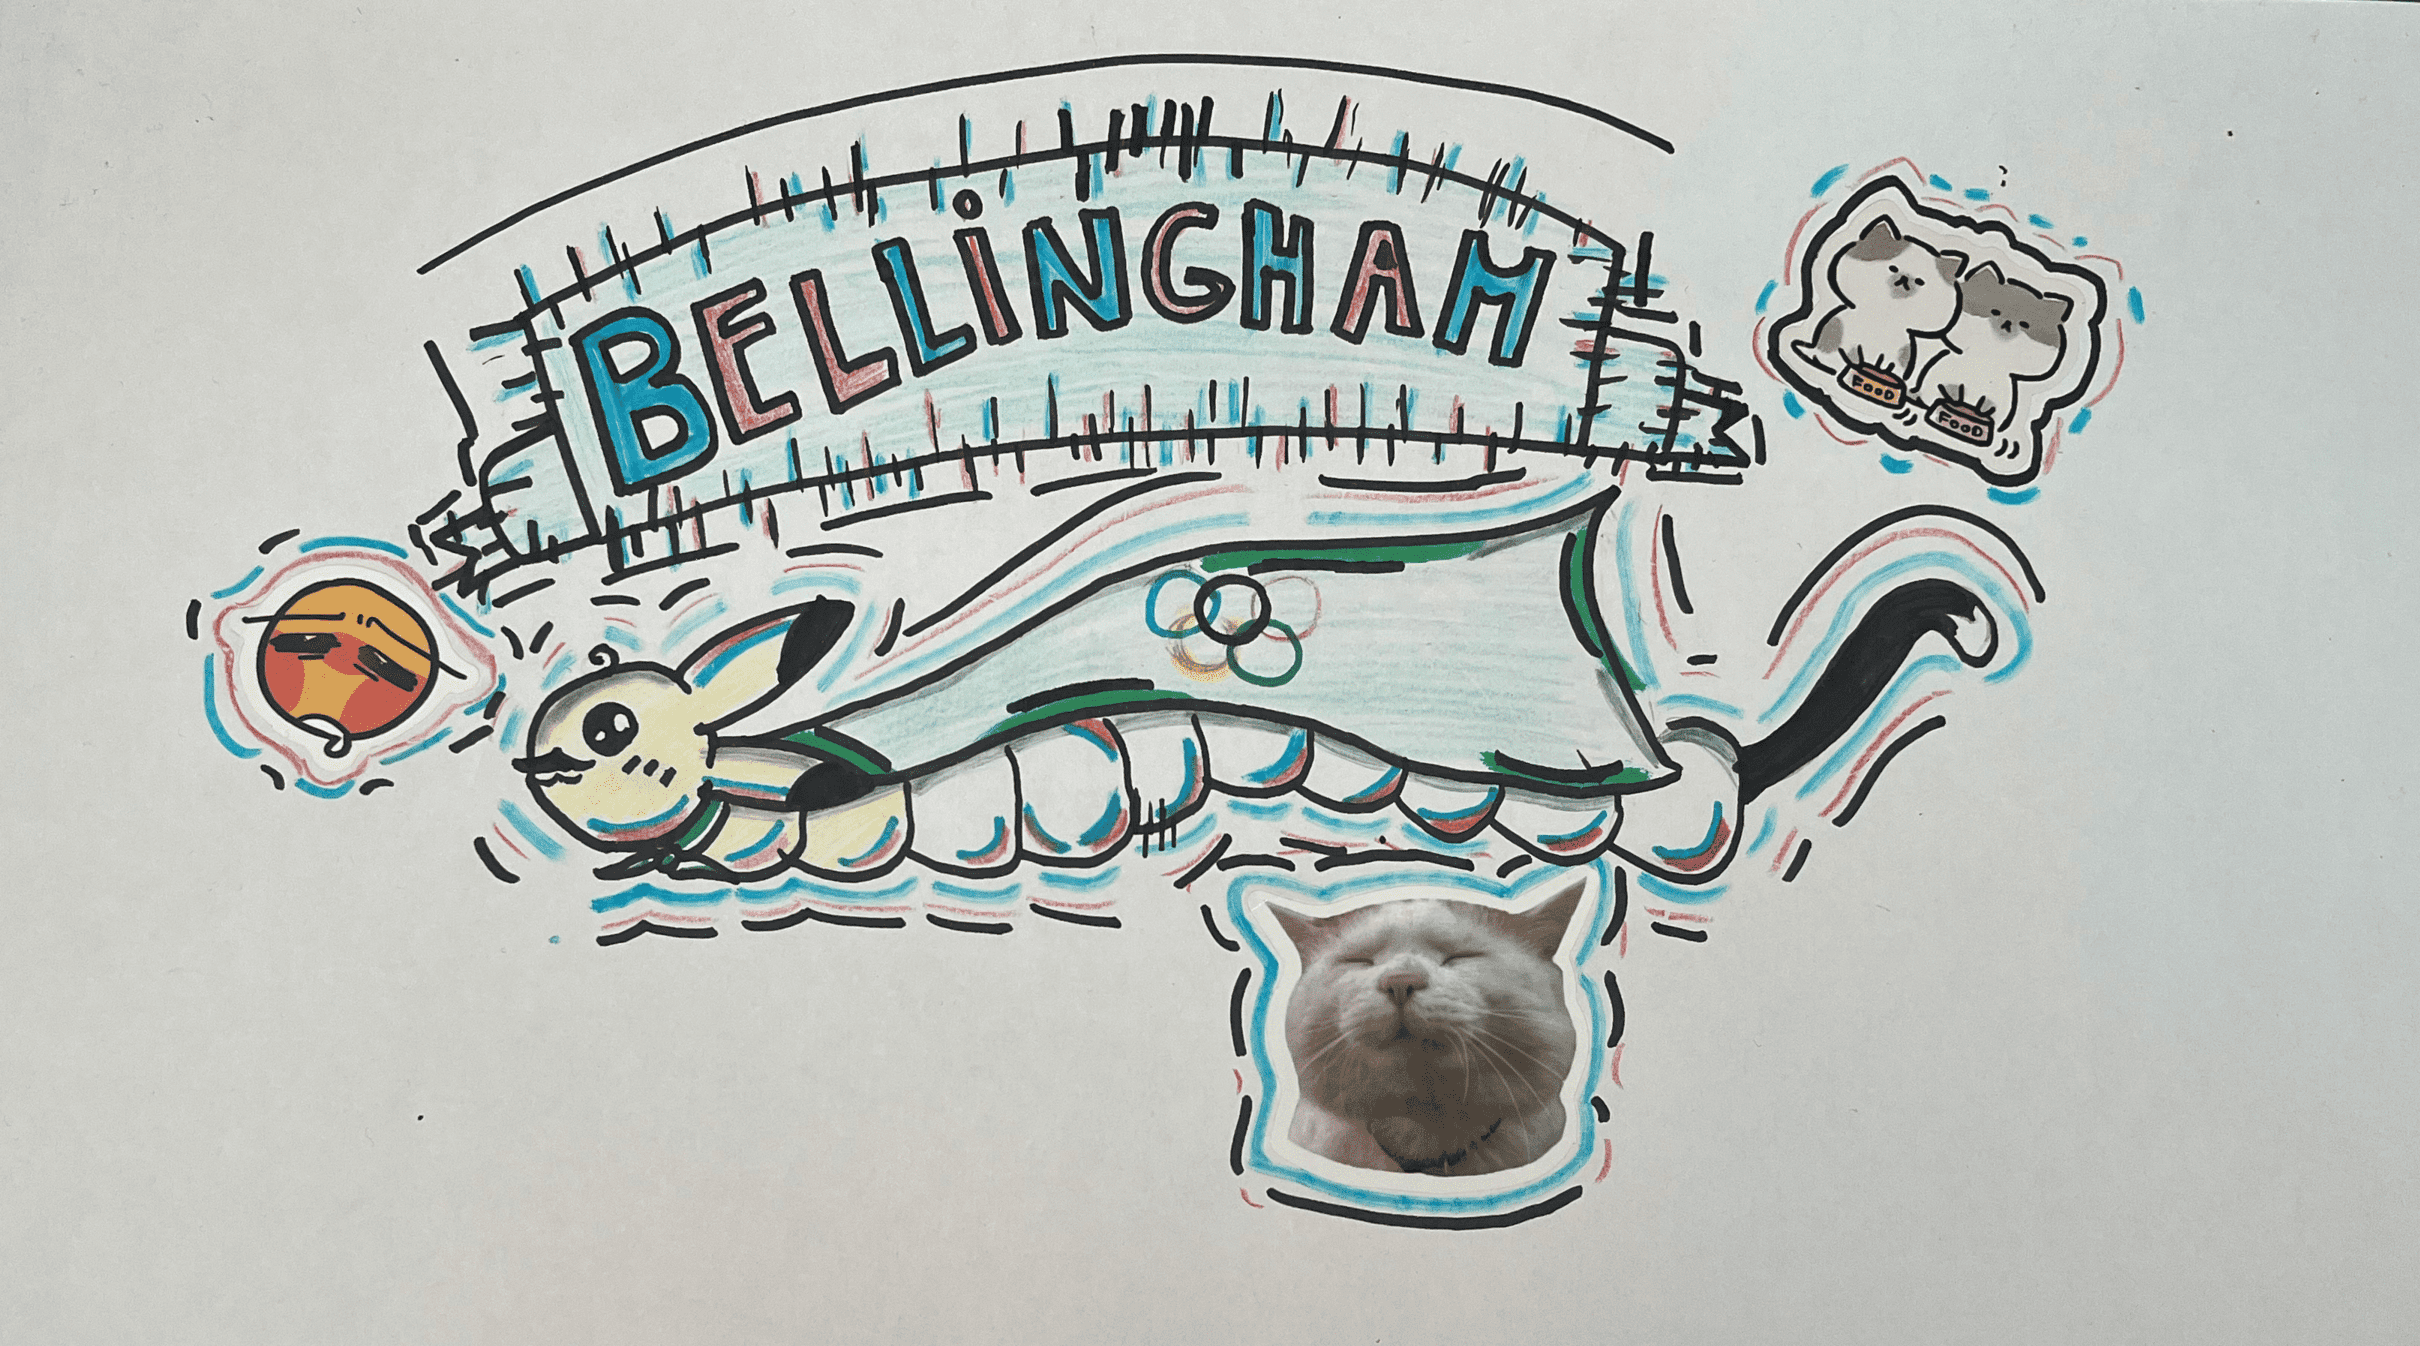 BELLiNGHAM
FOOD
FOOD